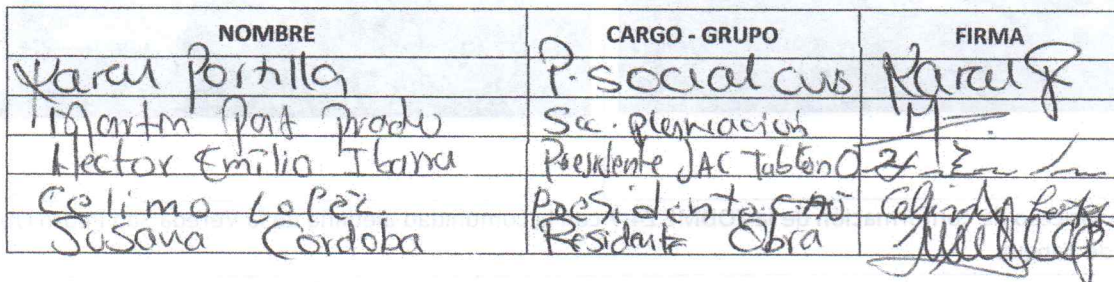 NOMBRE CARGO - GRUPO FIRMA
Karol Portilla P. social cus Karol P
Martin Prado Sec. planeacion
Hector Emilio Ibarra Presidente JAC Tablon
Celimo Lopez Presidente Celimo Lopez
Susana Cordoba Residente Obra